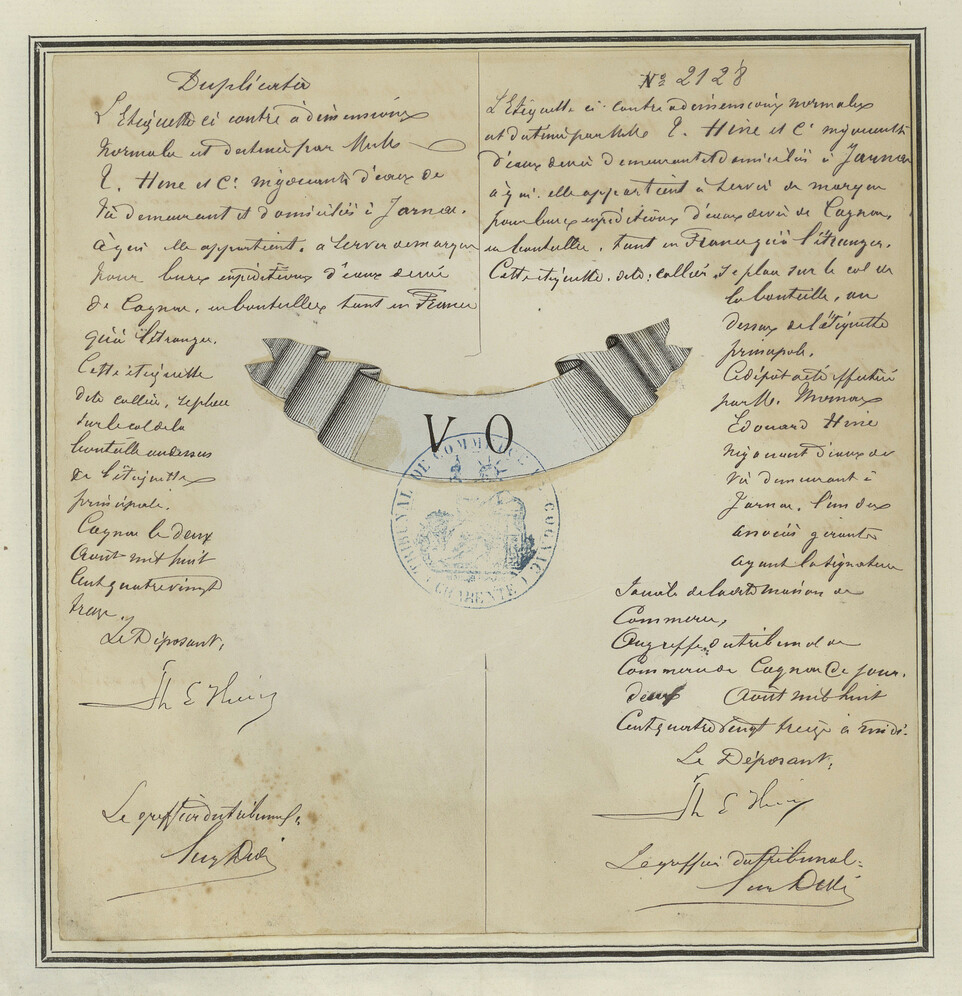 Duplicata
L'Etiquette ci contre à dimensions
normales est destinée par MM.
T. Hine et Cie négociants d'eaux de
vie demeurant et domiciliés à Jarnac.
à qui elle appartient, à servir de marque
pour leurs expéditions d'eaux de vie
de Cognac, en bouteilles tant en France
qu'à l'étranger.
Cette étiquette
dite collier, se place
sur le col de la
bouteille au dessus
de l'étiquette
principale.
Cognac le deux
Août mil huit
cent quatre vingt
treize.
Le Déposant,
Th E Hine
Le greffier du tribunal,
No 2128
L'Etiquette ci-contre à dimensions normales
est destinée par MM. T. Hine et Cie négociants
d'eaux de vie demeurant et domiciliés à Jarnac
à qui elle appartient à servir de marque
pour leurs expéditions d'eaux de vie de Cognac,
en bouteilles, tant en France qu'à l'étranger.
Cette étiquette, dite: collier, se place sur le col de
la bouteille, au
dessus de l'étiquette
principale.
Ce dépôt a été effectué
par M. Thomas
Edouard Hine
négociant d'eaux de
vie demeurant à
Jarnac, l'un des
associés gérants
ayant la signature
sociale de la dite maison de
Commerce,
Au greffe du tribunal de
Commerce de Cognac Ce jour,
deux Août mil huit
Cent quatre vingt treize à midi.
Le Déposant,
Th E Hine
Le greffier du tribunal:
V O
TRIBUNAL DE COMMERCE DE COGNAC
(CHARENTE)